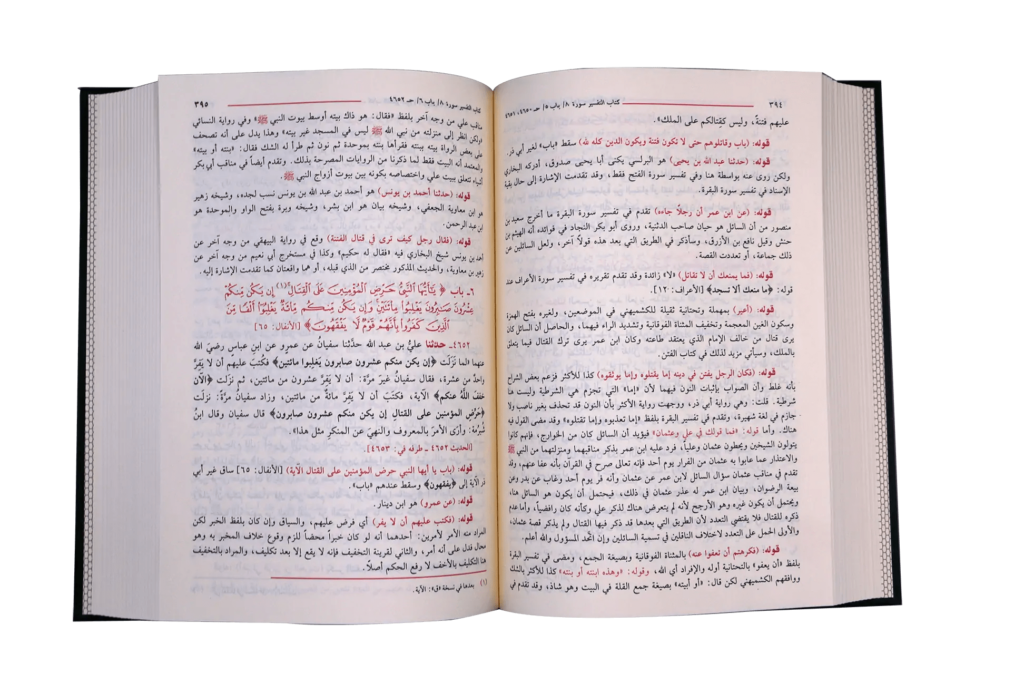 ٣٩٤
كتاب التفسير سورة ٨/ باب ٥/ حـ ٤٦٥٠، ٤٦٥١
عليهم فتنةً، وليس كقتالكم على الملك».
قوله: (باب وقاتلوهم حتى لا تكون فتنة ويكون الدين كله لله) سقط «باب» لغير أبي ذر.
قوله: (حدثنا عبد الله بن يحيى) هو البرلسي يكنى أبا يحيى صدوق، أدركه البخاري
ولكن روى عنه بواسطة هنا وفي تفسير سورة الفتح فقط، وقد تقدمت الإشارة إلى حال بقية
الإسناد في تفسير سورة البقرة.
قوله: (عن ابن عمر أن رجلاً جاءه) تقدم في تفسير سورة البقرة ما أخرج سعيد بن
منصور من أن السائل هو حيان صاحب الدثنية، وروى أبو بكر النجاد في فوائده أنه الهيثم بن
حنش وقيل نافع بن الأزرق، وسأذكر في الطريق التي بعد هذه قولاً آخر، ولعل السائلين عن
ذلك جماعة، أو تعددت القصة.
قوله: (فما يمنعك أن لا تقاتل) «لا» زائدة وقد تقدم تقريره في تفسير سورة الأعراف عند
قوله: ﴿ما منعك ألا تسجد﴾ [الأعراف: ١٢].
قوله: (أعير) بمهملة وتحتانية ثقيلة للكشميهني في الموضعين، ولغيره بفتح الهمزة
وسكون الغين المعجمة وتخفيف المثناة الفوقانية وتشديد الراء فيهما، والحاصل أن السائل كان
يرى قتال من خالف الإمام الذي يعتقد طاعته وكان ابن عمر يرى ترك القتال فيما يتعلق
بالملك، وسيأتي مزيد لذلك في كتاب الفتن.
قوله: (فكان الرجل يفتن في دينه إما يقتلوه وإما يوثقوه) كذا للأكثر فزعم بعض الشراح
بأنه غلط وأن الصواب بإثبات النون فيهما لأن «إما» التي تجزم هي الشرطية وليست هنا
شرطية. قلت: وهي رواية أبي ذر، ووجهت رواية الأكثر بأن النون قد تحذف بغير ناصب ولا
جازم في لغة شهيرة، وتقدم في تفسير البقرة بلفظ «إما تعذبوه وإما تقتلوه» وقد مضى القول فيه
هناك. وأما قوله: «فما قولك في علي وعثمان» فيؤيد أن السائل كان من الخوارج، فإنهم كانوا
يتولون الشيخين ويحطون عثمان وعلياً، فرد عليه ابن عمر بذكر مناقبهما ومنزلتهما من النبي ﷺ
والاعتذار عما عابوا به عثمان من الفرار يوم أحد فإنه تعالى صرح في القرآن بأنه عفا عنهم، وقد
تقدم في مناقب عثمان سؤال السائل لابن عمر عن عثمان وأنه فر يوم أحد وغاب عن بدر وعن
بيعة الرضوان، وبيان ابن عمر له عذر عثمان في ذلك، فيحتمل أن يكون هو السائل هنا،
ويحتمل أن يكون غيره وهو الأرجح لأنه لم يتعرض هناك لذكر علي وكأنه كان رافضياً، وأما عدم
ذكره للقتال فلا يقتضي التعدد لأن الطريق التي بعدها قد ذكر فيها القتال ولم يذكر قصة عثمان،
والأولى الحمل على التعدد لاختلاف الناقلين في تسمية السائلين وإن اتحد المسؤول والله أعلم.
قوله: (فكرهتم أن تعفوا عنه) بالمثناة الفوقانية وبصيغة الجمع، ومضى في تفسير البقرة
بلفظ «أن يعفو» بالتحتانية أوله والإفراد أي الله، وقوله: «وهذه ابنته أو بنته» كذا للأكثر بالشك
ووافقهم الكشميهني لكن قال: «أو أبيته» بصيغة جمع القلة في البيت وهو شاذ، وقد تقدم في
كتاب التفسير سورة ٨/ باب ٦/ حـ ٤٦٥٢
٣٩٥
مناقب علي من وجه آخر بلفظ «فقال: هو ذاك بيته أوسط بيوت النبي ﷺ» وفي رواية النسائي
«ولكن انظر إلى منزلته من نبي الله ﷺ ليس في المسجد غير بيته» وهذا يدل على أنه تصحف
على بعض الرواة بيته ببنته فقرأها بنته بموحدة ثم نون ثم طرأ له الشك فقال: «بنته أو بيته»
والمعتمد أنه البيت فقط لما ذكرنا من الروايات المصرحة بذلك. وتقدم أيضاً في مناقب أبي بكر
أشياء تتعلق ببيت علي واختصاصه بكونه بين بيوت أزواج النبي ﷺ.
قوله: (حدثنا أحمد بن يونس) هو أحمد بن عبد الله بن يونس نسب لجده، وشيخه زهير
هو ابن معاوية الجعفي، وشيخه بيان هو ابن بشر، وشيخه وبرة بفتح الواو والموحدة هو
ابن عبد الرحمن.
قوله: (فقال رجل كيف ترى في قتال الفتنة) وقع في رواية البيهقي من وجه آخر عن
أحمد بن يونس شيخ البخاري فيه «فقال له حكيم» وكذا في مستخرج أبي نعيم من وجه آخر عن
زهير بن معاوية، والحديث المذكور مختصر من الذي قبله، أو هما واقعتان كما تقدمت الإشارة إليه.
٦ـ باب ﴿يَا أَيُّهَا النَّبِيُّ حَرِّضِ الْمُؤْمِنِينَ عَلَى الْقِتَالِ(١) إِن يَكُن مِّنكُمْ
عِشْرُونَ صَابِرُونَ يَغْلِبُوا مِائَتَيْنِ وَإِن يَكُن مِّنكُم مِّائَةٌ يَغْلِبُوا أَلْفًا مِّنَ
الَّذِينَ كَفَرُوا بِأَنَّهُمْ قَوْمٌ لَّا يَفْقَهُونَ﴾ [الأنفال: ٦٥]
٤٦٥٢ـ حدثنا عليُّ بن عبد الله حدَّثنا سفيانُ عن عمرٍو عن ابنِ عباسٍ رضيَ الله
عنهما لما نَزَلَت ﴿إن يكن منكم عشرون صابرون يَغلِبوا مائتين﴾ فكُتِبَ عليهم أن لا يَفِرَّ
واحدٌ من عشرة، فقال سفيانُ غيرَ مرَّة: أن لا يَفِرَّ عشرون من مائتين، ثم نزلَت ﴿الآن
خفَّفَ اللَّهُ عنكم﴾ الآية، فكتَبَ أن لا يَفِرَّ مائةٌ من مائتين، وزاد سفيانُ مرَّةً: نزلَت
﴿حَرِّضِ المؤمنين على القتالِ إن يكن منكم عشرون صابرون﴾ قال سفيان وقال ابنُ
شُبرُمة: وأرَى الأمرَ بالمعروف والنهيَ عن المنكرِ مثلَ هذا».
[الحديث ٤٦٥٢ ـ طرفه في: ٤٦٥٣].
قوله: (باب يا أيها النبي حرض المؤمنين على القتال الآية) [الأنفال: ٦٥] ساق غير أبي
ذر الآية إلى ﴿يفقهون﴾ وسقط عندهم «باب».
قوله: (عن عمرو) هو ابن دينار.
قوله: (فكتب عليهم أن لا يفر) أي فرض عليهم، والسياق وإن كان بلفظ الخبر لكن
المراد منه الأمر لأمرين: أحدهما أنه لو كان خبراً محضاً للزم وقوع خلاف المخبر به وهو
محال فدل على أنه أمر، والثاني لقرينة التخفيف فإنه لا يقع إلا بعد تكليف، والمراد بالتخفيف
هنا التكليف بالأخف لا رفع الحكم أصلاً.
(١) بعدها في نسخة «ق»: الآية.